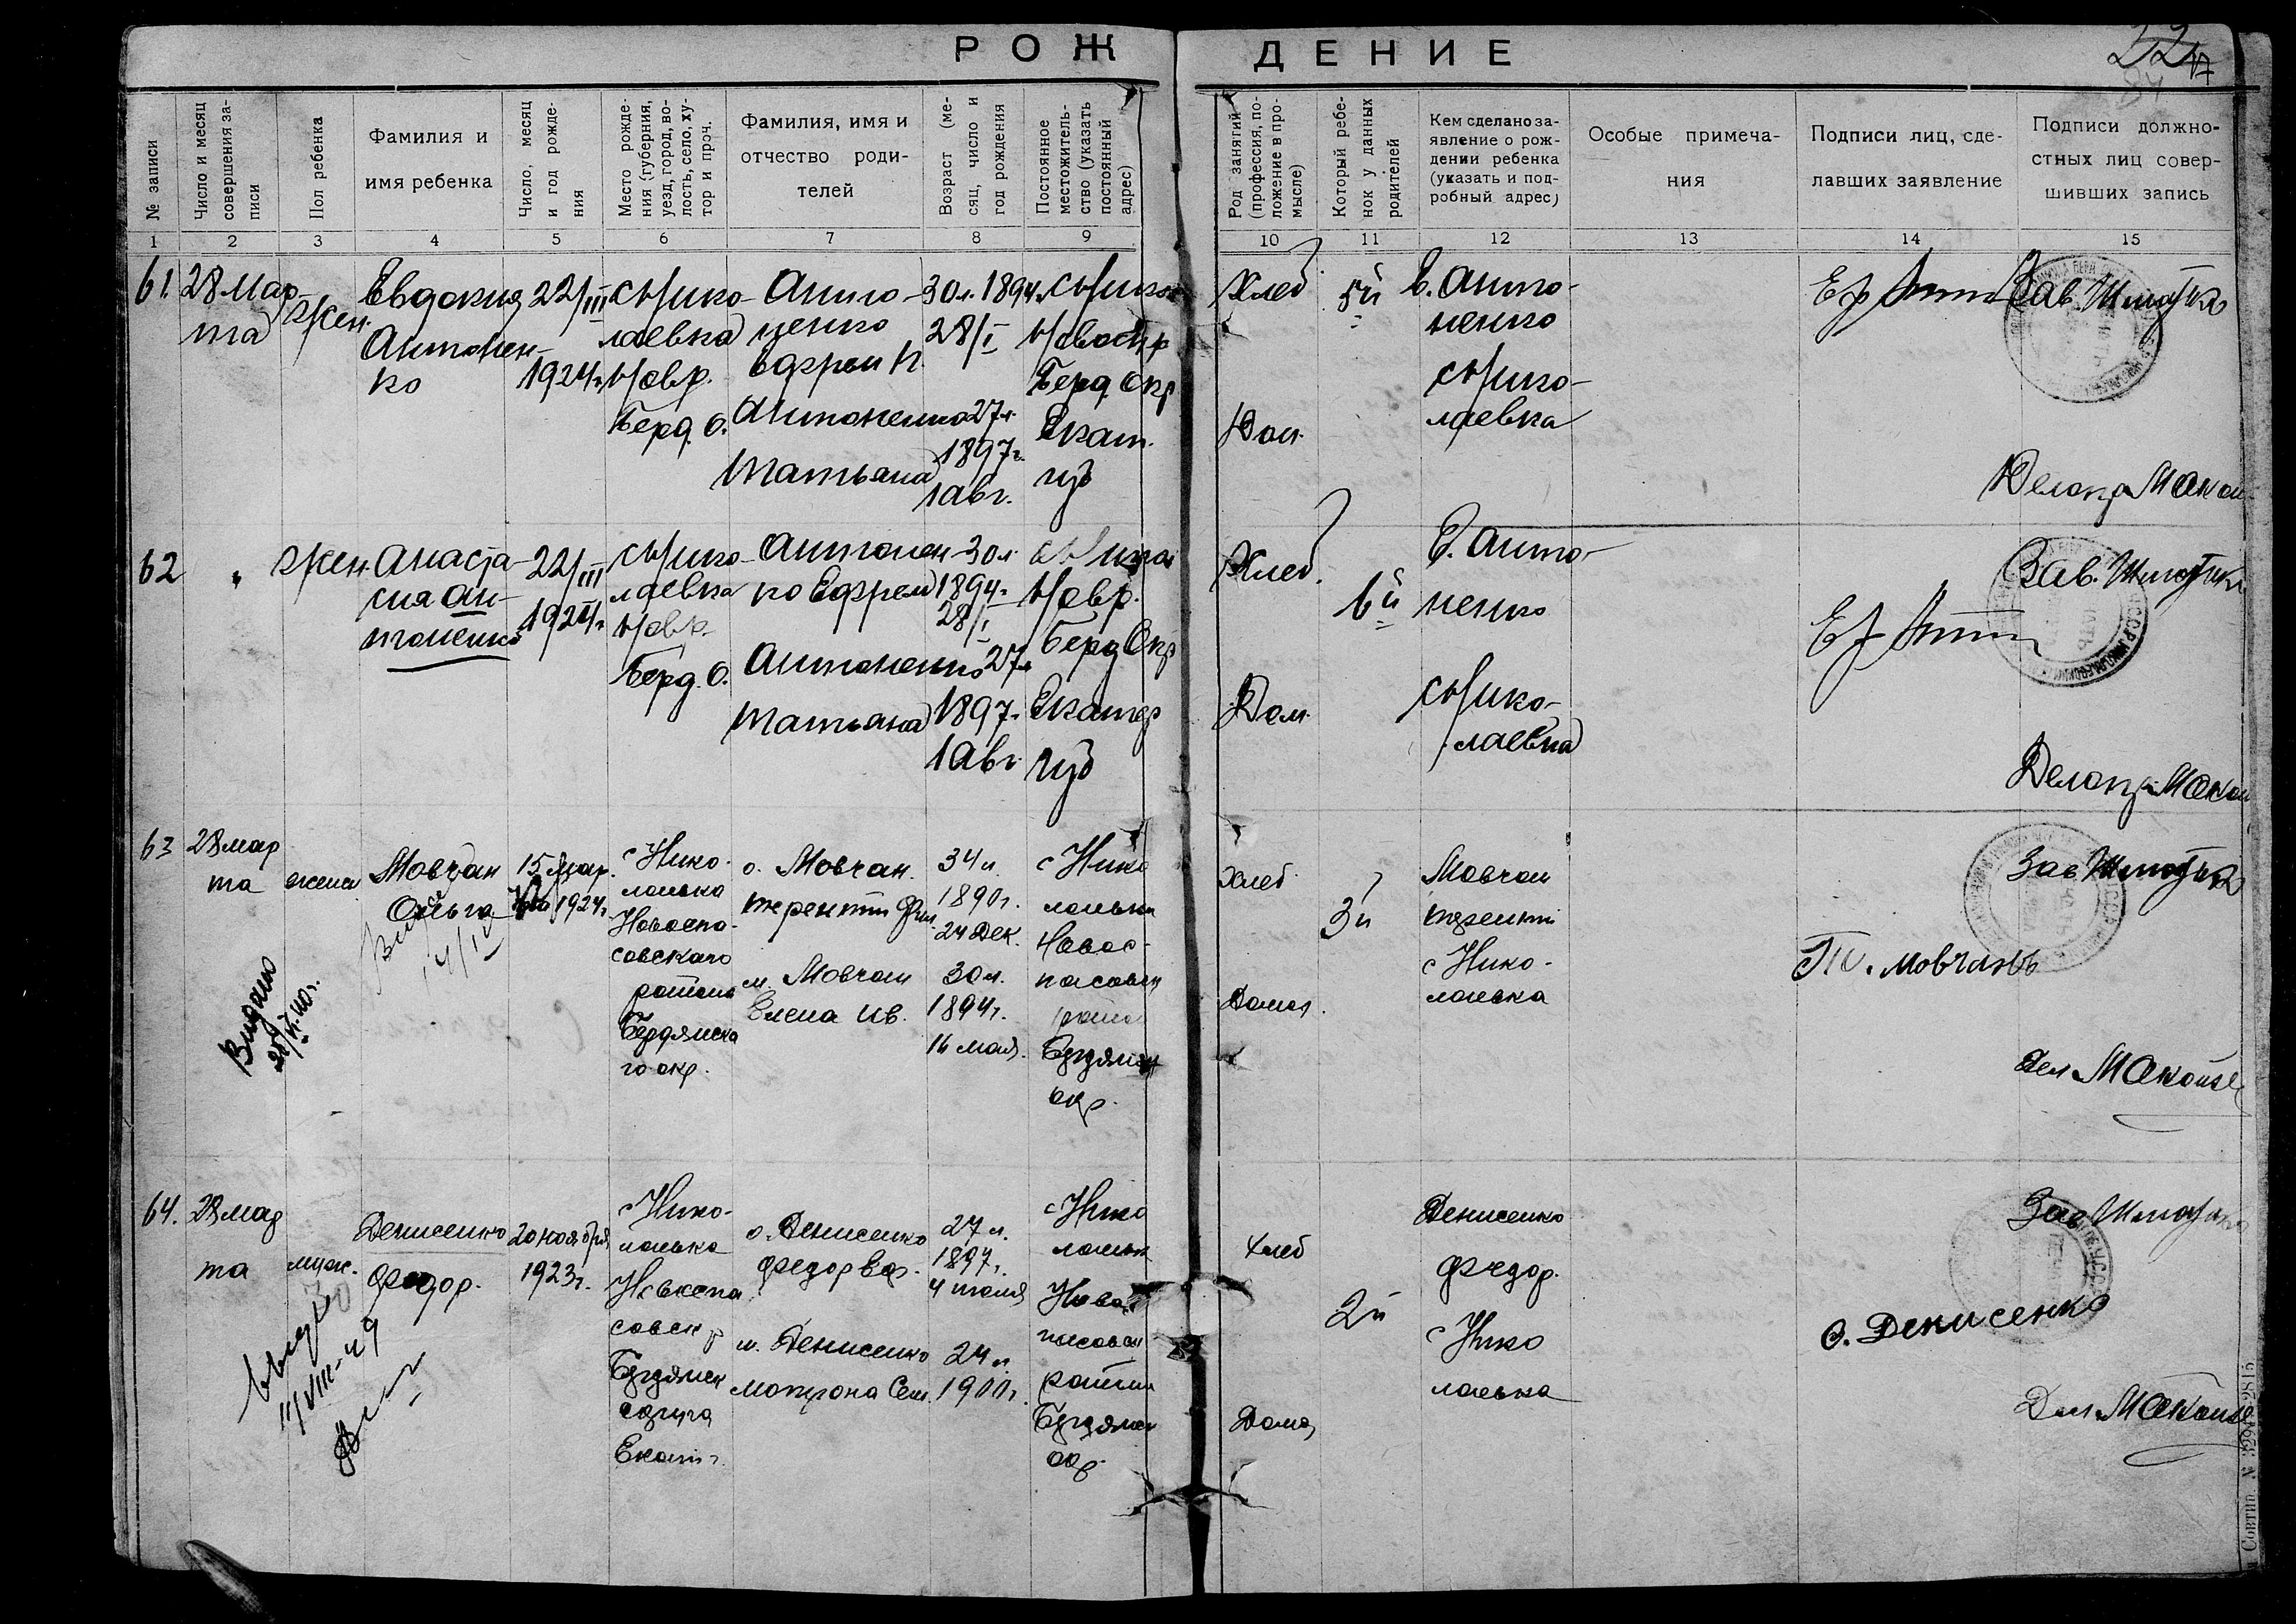 РОЖДЕНИЕ
22
84
№ записи
Число и месяц совершения за-
писи
Пол ребенка
Фамилия и
имя ребенка
Число, месяц
и год рожде-
ния
Место рожде-
ния (губерния,
уезд, город, во-
лость, село, ху-
тор и проч.
Фамилия, имя и
отчество роди-
телей
Возраст (ме-
сяц, число и
год рождения
Постоянное
местожитель-
ство (указать
постоянный
адрес)
Род занятий
(профессия, по-
ложение в про-
мысле)
Который ребе-
нок у данных
родителей
Кем сделано за-
явление о рож-
дении ребенка
(указать и под-
робный адрес)
Особые примеча-
ния
Подписи лиц, сде-
лавших заявление
Подписи должно-
стных лиц совер-
шивших запись
1 2 3 4 5 6 7 8 9 10 11 12 13 14 15
61.
28 мар-
та
жен.
Евдокия
Антонен-
ко
22/III
1924г.
с Нико-
лаевка
Н/овр.
Берд. О.
Анто-
ненко
Ефрем
Антоненко
Татьяна
30л. 1894г.
28/I
27л.
1897г.
1 авг.
Берд. Окр
Екат.
губ
Хлеб
Дом.
5й
Е. Анто-
ненко
с Нико-
лаевка
Зав.
62
"
жен
Анаста-
сия Ан-
тоненко
22/III
1924г.
с Нико-
лаевка
Н/овр.
Берд. О.
Антонен-
ко Ефрем
Антоненко
Татьяна
30л.
1894г.
28/I
27л.
1897г.
1 авг.
Н/овр.
Берд Окр
Екатер
губ
Хлеб.
Дом.
6й
Е. Анто-
ненко
с Нико-
лаевка
Зав.
63
28 мар
та
женск
Мовчан
Ольга
15 Мар.
1924г.
с Нико-
лаевка
Новоспа-
совского
района
Бердянска
го окр.
о. Мовчан
Терентий Фил.
м. Мовчан
Елена Ив.
34 л.
1890г.
24 Дек.
30 л.
1894г.
16 мая.
с Нико
лаевка
Новос-
пасовск
район
Бердянск
окр.
Хлеб
Домаш.
3й
Мовчан
Терентий
с Нико-
лаевка
Т. Мовчанъ
Зав
Дел
Видано
64.
28 мар
та
муж.
Денисенко
Федор.
20 ноября
1923г.
с Нико-
лаевка
Новоспа
совск р
Бердянск
округа
Екат г.
о. Денисенко
Федор Еф.
м. Денисенко
Матрона Сем.
27 л.
1897г.
4 июля
24 л
1900г.
с Нико
лаевк
Ново
пасовск
район
Бердянск
окр.
Хлеб
Домаш
2й
Денисенко
Федор.
с Нико
лаевка
Ф. Денисенко
Зав
Дел
11/VIII-49